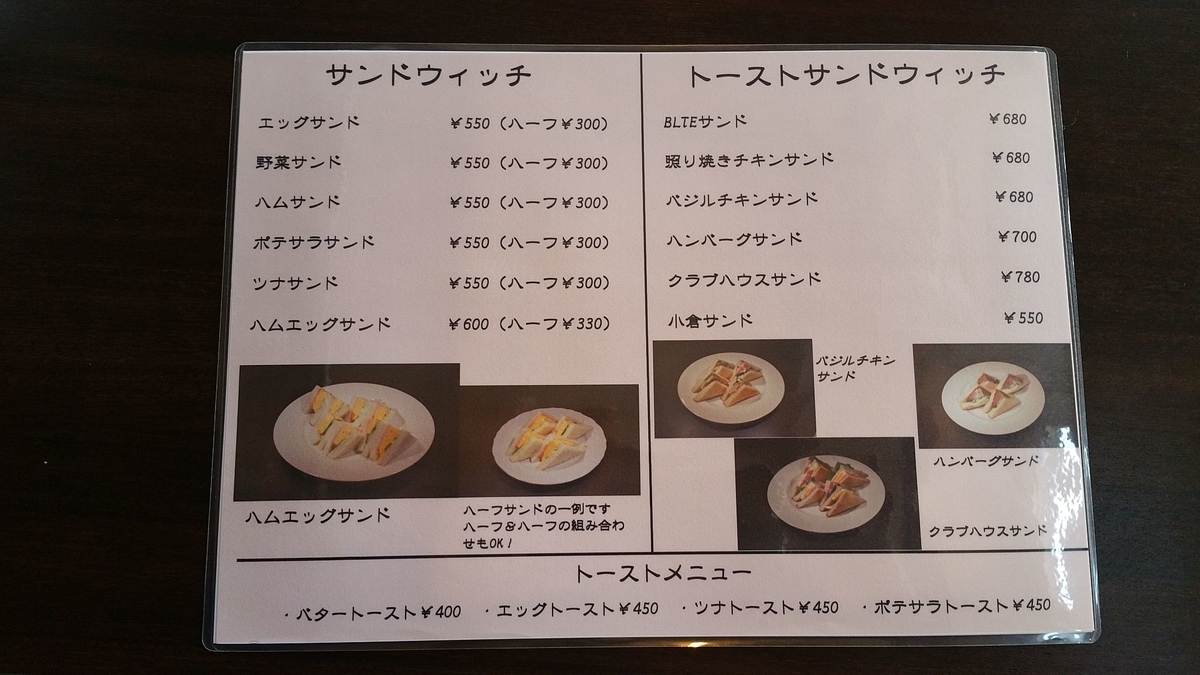 サンドウィッチ
エッグサンド ¥550（ハーフ¥300）
野菜サンド ¥550（ハーフ¥300）
ハムサンド ¥550（ハーフ¥300）
ポテサラサンド ¥550（ハーフ¥300）
ツナサンド ¥550（ハーフ¥300）
ハムエッグサンド ¥600（ハーフ¥330）
ハムエッグサンド
ハーフサンドの一例です
ハーフ&ハーフの組み合わ
せもOK！
トーストサンドウィッチ
BLTEサンド ¥680
照り焼きチキンサンド ¥680
バジルチキンサンド ¥680
ハンバーグサンド ¥700
クラブハウスサンド ¥780
小倉サンド ¥550
バジルチキン
サンド
ハンバーグサンド
クラブハウスサンド
トーストメニュー
・バタートースト¥400 ・エッグトースト¥450 ・ツナトースト¥450 ・ポテサラトースト¥450